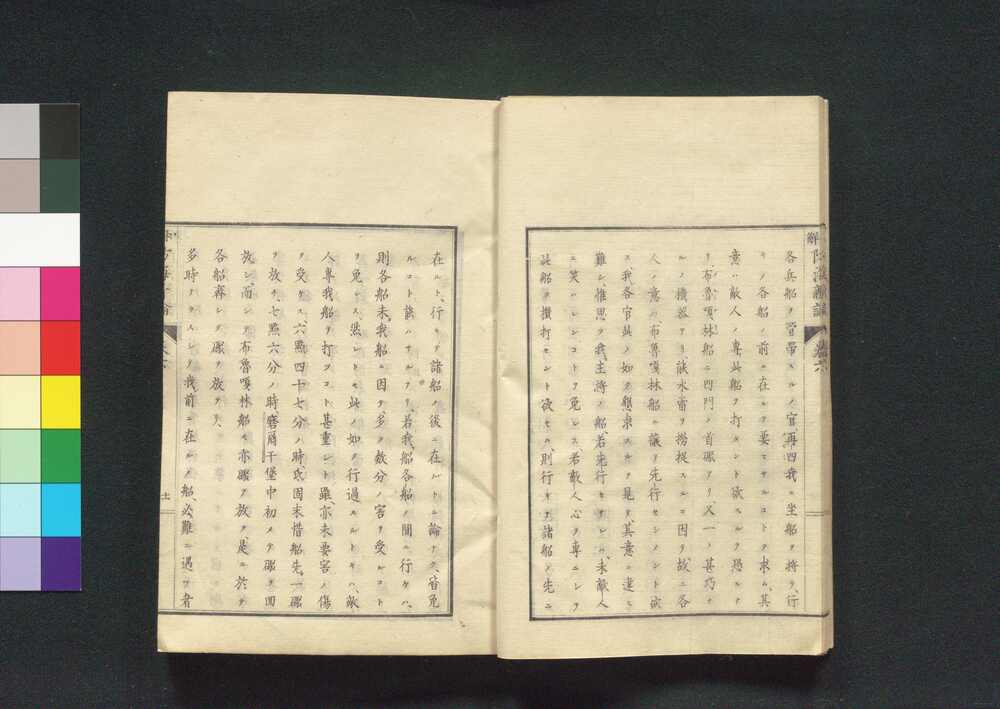 各兵船ヲ管帶スルノ官再四我ニ坐船ヲ將テ行
キノ各船ノ前ニ在ルヲ要セサルコトヲ求ム、其
意ハ敵人ノ專此船ヲ打タント欲スルヲ恐ルヽナ
リ布魯嘎林船ニ四門ノ首礮アリ、又一ノ甚巧ナ
ルノ機器アリ、能水雷ヲ撈捉スルコ因テ故ニ各
人ノ意ハ布魯嘎林船ニ讓テ先行セシメント欲
ス、我各官其ノ如ク懇求スルヲ見テ、其意ニ違ヒ
難シ、惟思ヲ我主將ノ船、若先行セサレハ、未敵人
ニ笑ハレンコトヲ免レス、若敵人心ヲ專ニシテ
此船ヲ攢打セント欲セハ、則行キテ諸船ノ先ニ
在ルト、行キテ諸船ノ後ニ在ルトニ論ナク、皆免
ルコト能ハサルナリ、若我船各船ノ間ニ行ケハ、
則各船未我船ニ因テ多ク數分ノ害ヲ受ルコト
ヲ免レス、然レトモ此ノ如ク行過スルトキハ、敵
人專我船ヲ打ツコト甚重シト雖、亦未要害ノ傷
ヲ受ケス、六點四十七分ノ時、氐固末惜船先一礮
ヲ放ツ、七點六分ノ時磨爾干堡中初メテ礮ヲ回
放シ、而シテ布魯嘎林船モ亦礮ヲ放ツ、是ニ於テ
各船齊シク礮ヲ放テリ、
多時ナラスシテ我前ニ在ルノ船、必難ニ遇フ者
十一